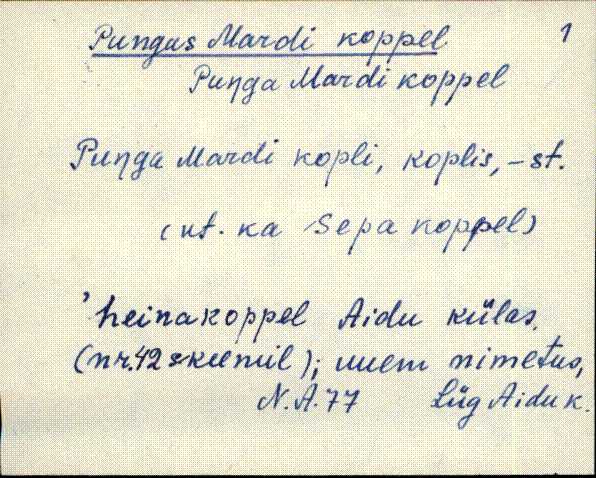 Pungas Mardi koppel 1
Puŋga Mardi koppel
Puŋga Mardi kopli, koplis, -st.
(ut. ka Sepa koppel)
'heinakoppel Aidu külas.
(nr. 42 skeemil); uuem nimetus,
N.A. 77 Lüg Aidu k.